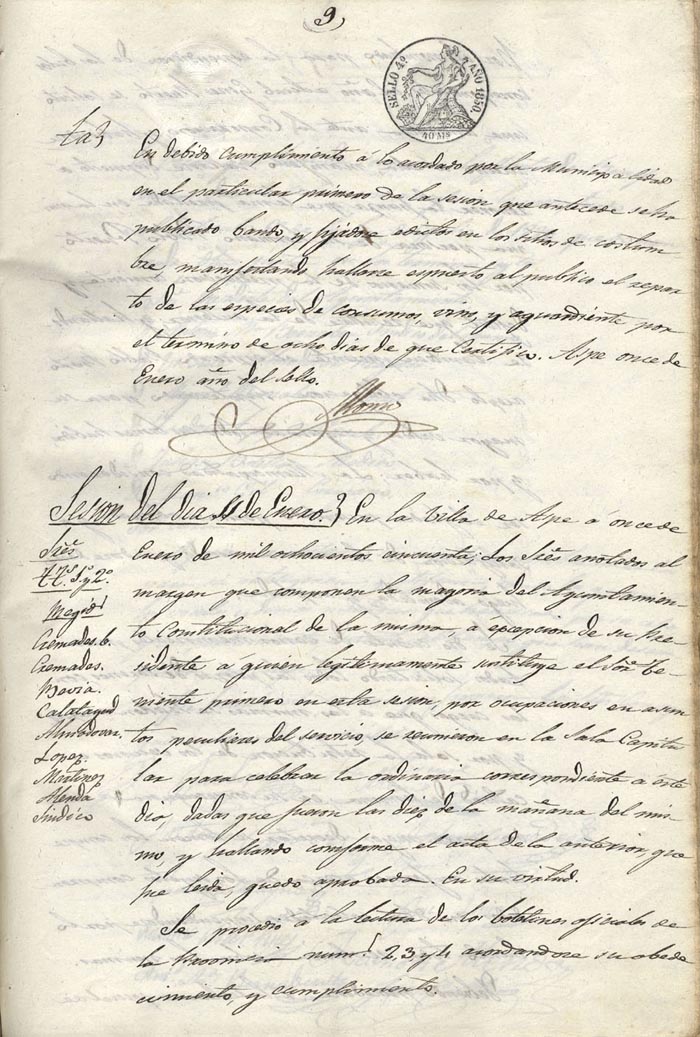 9
SELLO 4º AÑO 1850.
40 Ms
ta}
En debido cumplimiento á lo acordado por la Municipalidad
en el particular primero de la sesion que antecede se ha
publicado bando, y fijádose edictos en los sitios de costum
bre, manifestando hallarse espuesto al publico el repar
to de las especies de consumos, vino, y aguardiente por
el termino de ocho dias de que Certifico. Aspe once de
Enero año del sello.
Sesion del dia 11 de Enero.} En la Villa de Aspe a once de
Enero de mil ochocientos cincuenta; Los Sres anotados al
margen que componen la mayoria del Ayuntamien-
to Constitucional de la misma, a excepcion de su Pre-
sidente a quien legitimamente sustituye el Sor. Te-
niente primero en esta sesion, por ocupaciones en asun
tos peculiares del servicio, se reunieron en la Sala Capitu
lar para celebrar la ordinaria correspondiente a este
dia, dadas que fueron las diez de la mañana del mis-
mo, y hallando conforme el acta de la anterior, que
fue leida, quedo aprobada. En su virtud.
Se procedio a la lectura de los boletines oficiales de
la Provincia nums. 2, 3 y 4 acordandose su obede
cimiento, y cumplimiento.
Sres
TT. 1º y 2º
Cremades.
Calatayud
Almodovar.
Lopez.
Martinez
Sindico